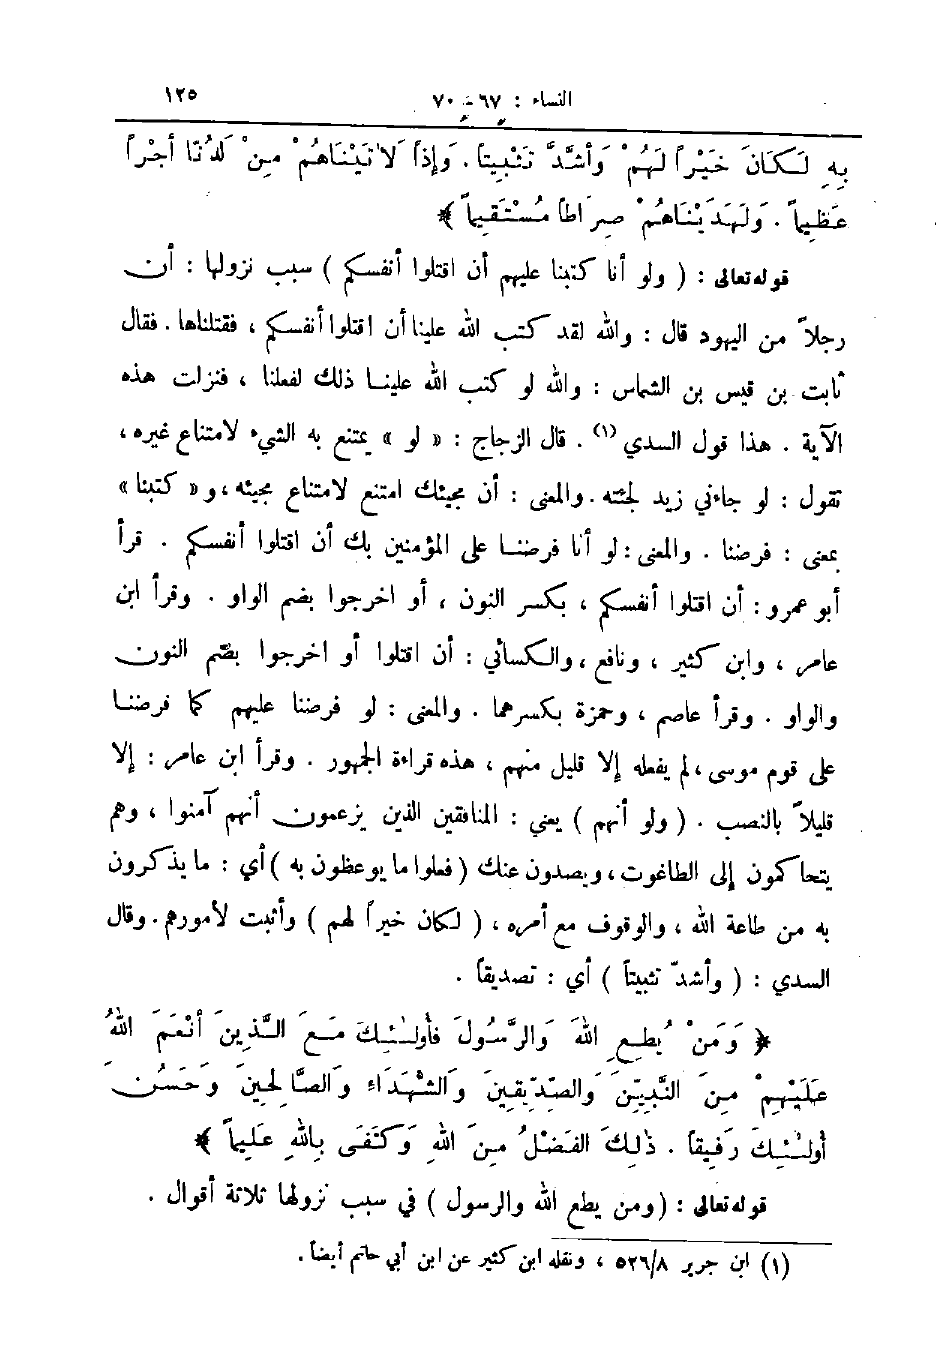 النساء : ٦٧ - ٧٠ ١٢٥
بِهِ لَكَانَ خَيْراً لَهُمْ وَأَشَدَّ تَثْبِيتاً . وَإِذاً لَآتَيْنَاهُمْ مِنْ لَدُنَّا أَجْراً
عَظِيماً . وَلَهَدَيْنَاهُمْ صِرَاطاً مُسْتَقِيماً ﴾
قوله تعالى : ( ولو أنا كتبنا عليهم أن اقتلوا أنفسكم ) سبب نزولها : أن
رجلاً من اليهود قال : والله لقد كتب الله علينا أن اقتلوا أنفسكم ، فقتلناها . فقال
ثابت بن قيس بن الشماس : والله لو كتب الله علينا ذلك لفعلنا ، فنزلت هذه
الآية . هذا قول السدي (١) . قال الزجاج : « لو » يمتنع به الشيء لامتناع غيره ،
تقول : لو جاءني زيد لجئته . والمعنى : أن مجيئك امتنع لامتناع مجيئه ، و« كتبنا »
بمعنى : فرضنا . والمعنى : لو أنا فرضنا على المؤمنين بك أن اقتلوا أنفسكم . قرأ
أبو عمرو : أن اقتلوا أنفسكم ، بكسر النون ، أو اخرجوا بضم الواو . وقرأ ابن
عامر ، وابن كثير ، ونافع ، والكسائي : أن اقتلوا أو اخرجوا بضم النون
والواو . وقرأ عاصم ، وحمزة بكسرهما . والمعنى : لو فرضنا عليهم كما فرضنا
على قوم موسى ، لم يفعله إلا قليل منهم ، هذه قراءة الجمهور . وقرأ ابن عامر : إلا
قليلاً بالنصب . ( ولو أنهم ) يعني : المنافقين الذين يزعمون أنهم آمنوا ، وهم
يتحاكمون إلى الطاغوت ، ويصدون عنك ( فعلوا ما يوعظون به ) أي : ما يذكرون
به من طاعة الله ، والوقوف مع أمره ، ( لكان خيراً لهم ) وأثبت لأمورهم . وقال
السدي : ( وأشدّ تثبيتاً ) أي : تصديقاً .
﴿ وَمَنْ يُطِعِ اللهَ وَالرَّسُولَ فَأُولٰئِكَ مَعَ الَّذِينَ أَنْعَمَ اللهُ
عَلَيْهِمْ مِنَ النَّبِيِّنَ وَالصِّدِّيقِينَ وَالشُّهَدَاءِ وَالصَّالِحِينَ وَحَسُنَ
أُولٰئِكَ رَفِيقاً . ذٰلِكَ الفَضْلُ مِنَ اللهِ وَكَفَى بِاللهِ عَلِيماً ﴾
قوله تعالى : ( ومن يطع الله والرسول ) في سبب نزولها ثلاثة أقوال .
(١) ابن جرير ٥٢٦/٨ ، ونقله ابن كثير عن ابن أبي حاتم أيضاً .